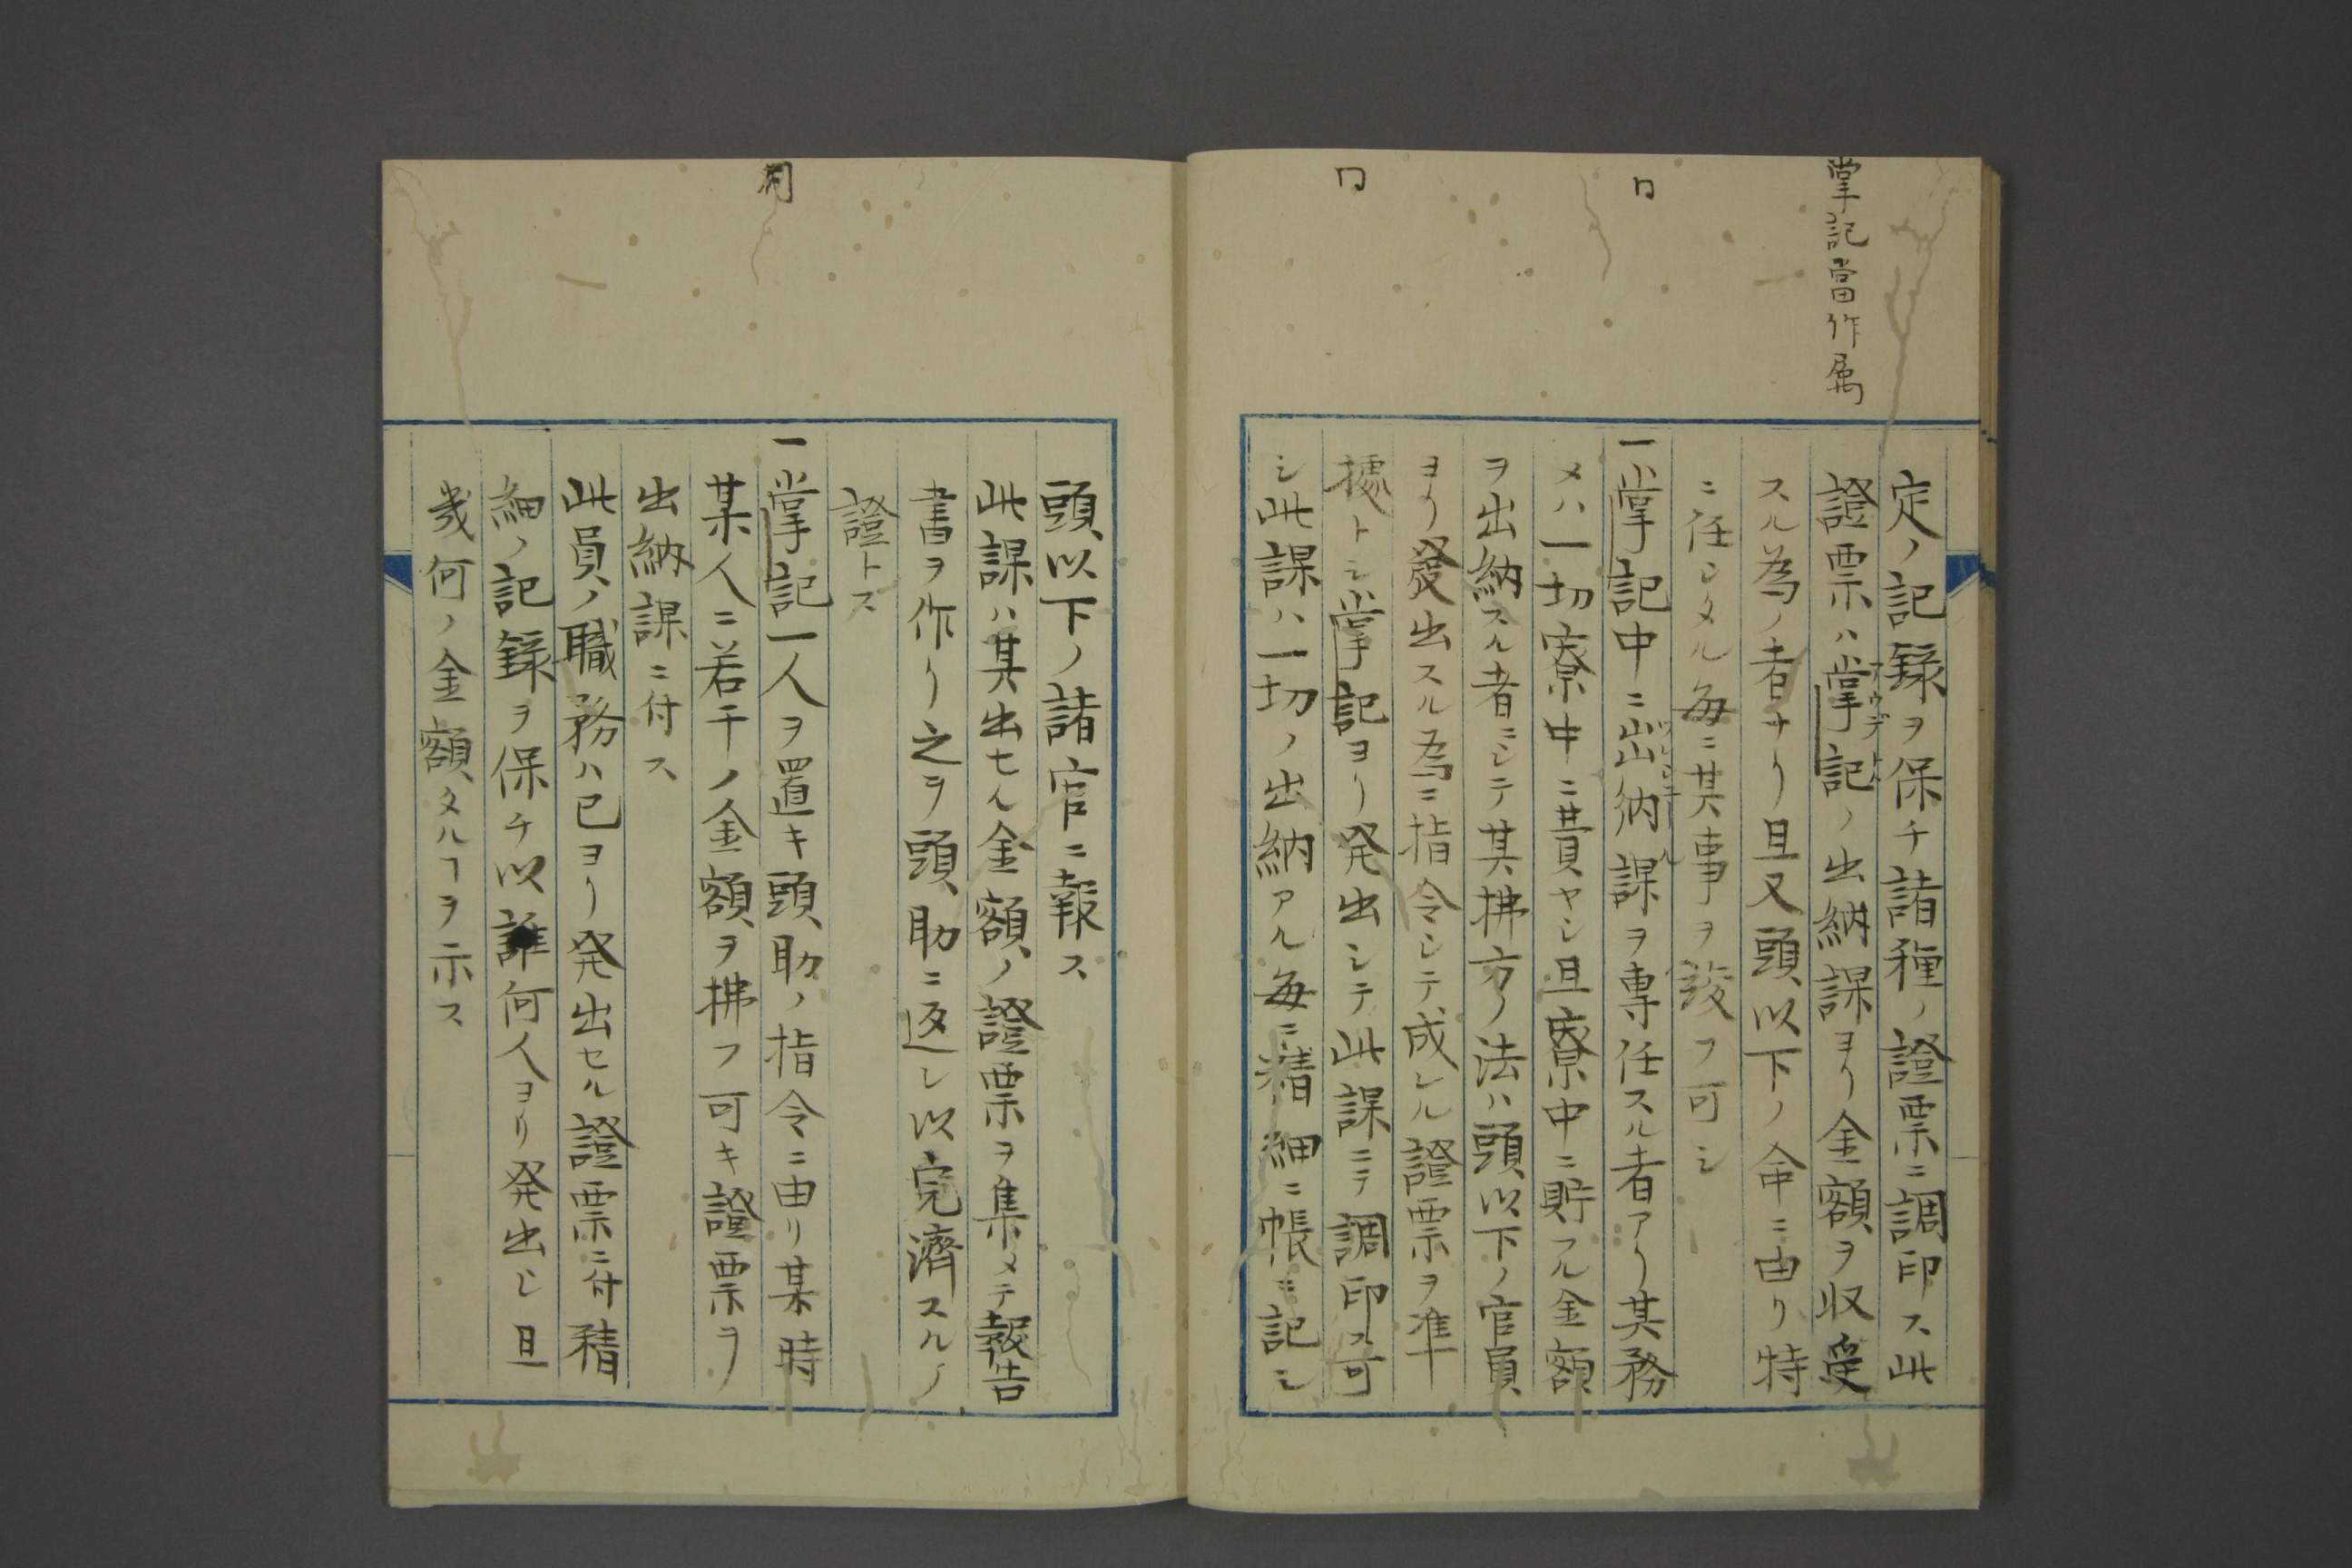 掌記當作属
定ノ記録ヲ保チ諸種ノ證票ニ調印ス此
證票ハ掌記ノ出納課ヨリ金額ヲ収受
スル為ノ者ナリ且又頭以下ノ命ニ由リ特
ニ任シタル毎ニ其事ヲ設フ可シ
一掌記中ニ出納課ヲ専任スル者アリ其務
メハ一切寮中ニ費ヤシ且寮中ニ貯フル金額
ヲ出納スル者ニシテ其拂方ノ法ハ頭以下ノ官員
ヨリ發出スル為ニ指令シテ成レル證票ヲ準
據トシ掌記ヨリ発出シテ此課ニテ調印ス可
シ此課ハ一切ノ出納アル毎ニ精細ニ帳ニ記シ
頭以下ノ諸官ニ報ス
此課ハ其出セル金額ノ證票ヲ集メテ報告
書ヲ作リ之ヲ頭助ニ返シ以完濟スルノ
證トス
同
一掌記一人ヲ置キ頭助ノ指令ニ由リ某時
某人ニ若干ノ金額ヲ拂フ可キ證票ヲ
出納課ニ付ス
此員ノ職務ハ已ヨリ発出セル證票ニ付精
細ノ記録ヲ保チ以誰何人ヨリ発出シ且
幾何ノ金額タルヿヲ示ス